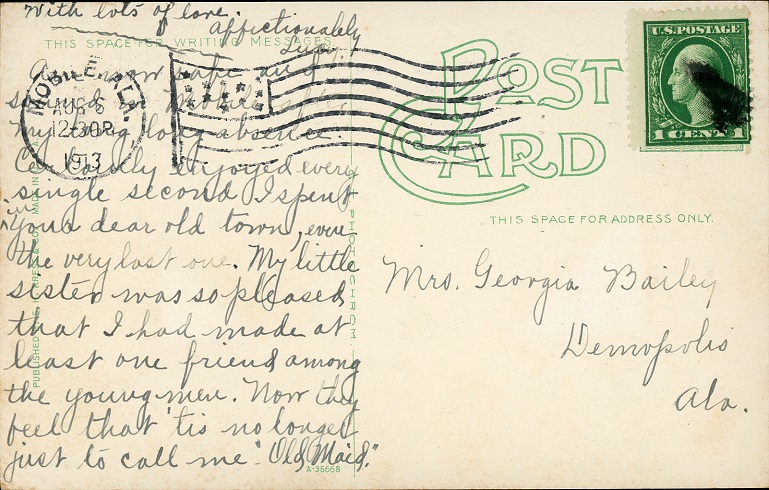 With lots of love.
Affectionately
THIS SPACE FOR WRITING MESSAGES
MOBILE, ALA.
AUG 5
12-30P
1913
Am now safe and
sound in Mobile after
my long long absence.
Certainly enjoyed every
single second I spent
in
your dear old town, even
the very last one. My little
sister was so pleased
that I had made at
least one friend among
the young men. Now they
feel that 'tis no longer
just to call me "Old Maid."
A-35668
POST
CARD
U.S. POSTAGE
1 CENT 1
THIS SPACE FOR ADDRESS ONLY.
Mrs. Georgia Bailey
Demopolis
Ala.